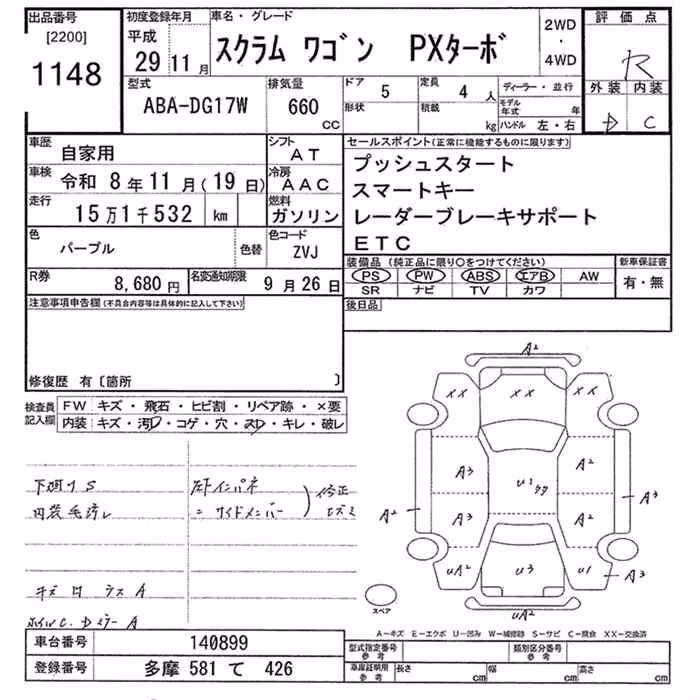 出品番号
[2200]
1148
初度登録年月
平成
29 11 月
車名・グレード
スクラム ワゴン PXターボ
2WD
・
4WD
評価点
R
外装 内装
D C
型式
ABA-DG17W
排気量
660
CC
ドア
5
定員
4 人
形状
積載
kg
ディーラー・並行
モデル年式 年
ハンドル 左・右
車歴
自家用
シフト
AT
車検
令和 8年11月(19日)
冷房
AAC
走行
15万1千532 km
燃料
ガソリン
色
パープル
色替
色コード
ZVJ
R券
8,680円
名変通知期限
9月26日
セールスポイント(正常に機能するものに限ります)
プッシュスタート
スマートキー
レーダーブレーキサポート
ETC
装備品 (純正品に限り○をつけてください)
PS PW ABS エアB AW
SR ナビ TV カワ
新車保証書
有・無
注意事項申告欄(不具合内容等は具体的に記入して下さい)
後日品
修復歴 有〔箇所 〕
検査員
記入欄
FW キズ・飛石・ヒビ割・リペア跡・×要
内装 キズ・汚レ・コゲ・穴・スレ・キレ・破レ
下廻りS
内装毛汚レ
左下インパネ
〃 サイドメンバー
修正
キズ ガラス A
ホイルC. Dミラー A
A2
XX XX XX
A3 U1 A2
A3 A2
A2 A3
UA2 U3 U1 A3
UA2
スペア
A−キズ E−エクボ U−凹み W−補修跡 S−サビ C−腐食 XX−交換済
車台番号
140899
登録番号
多摩 581 て 426
型式指定番号
参考
類別区分番号
参考
車庫証明用
参考
長さ cm
幅 cm
高さ cm